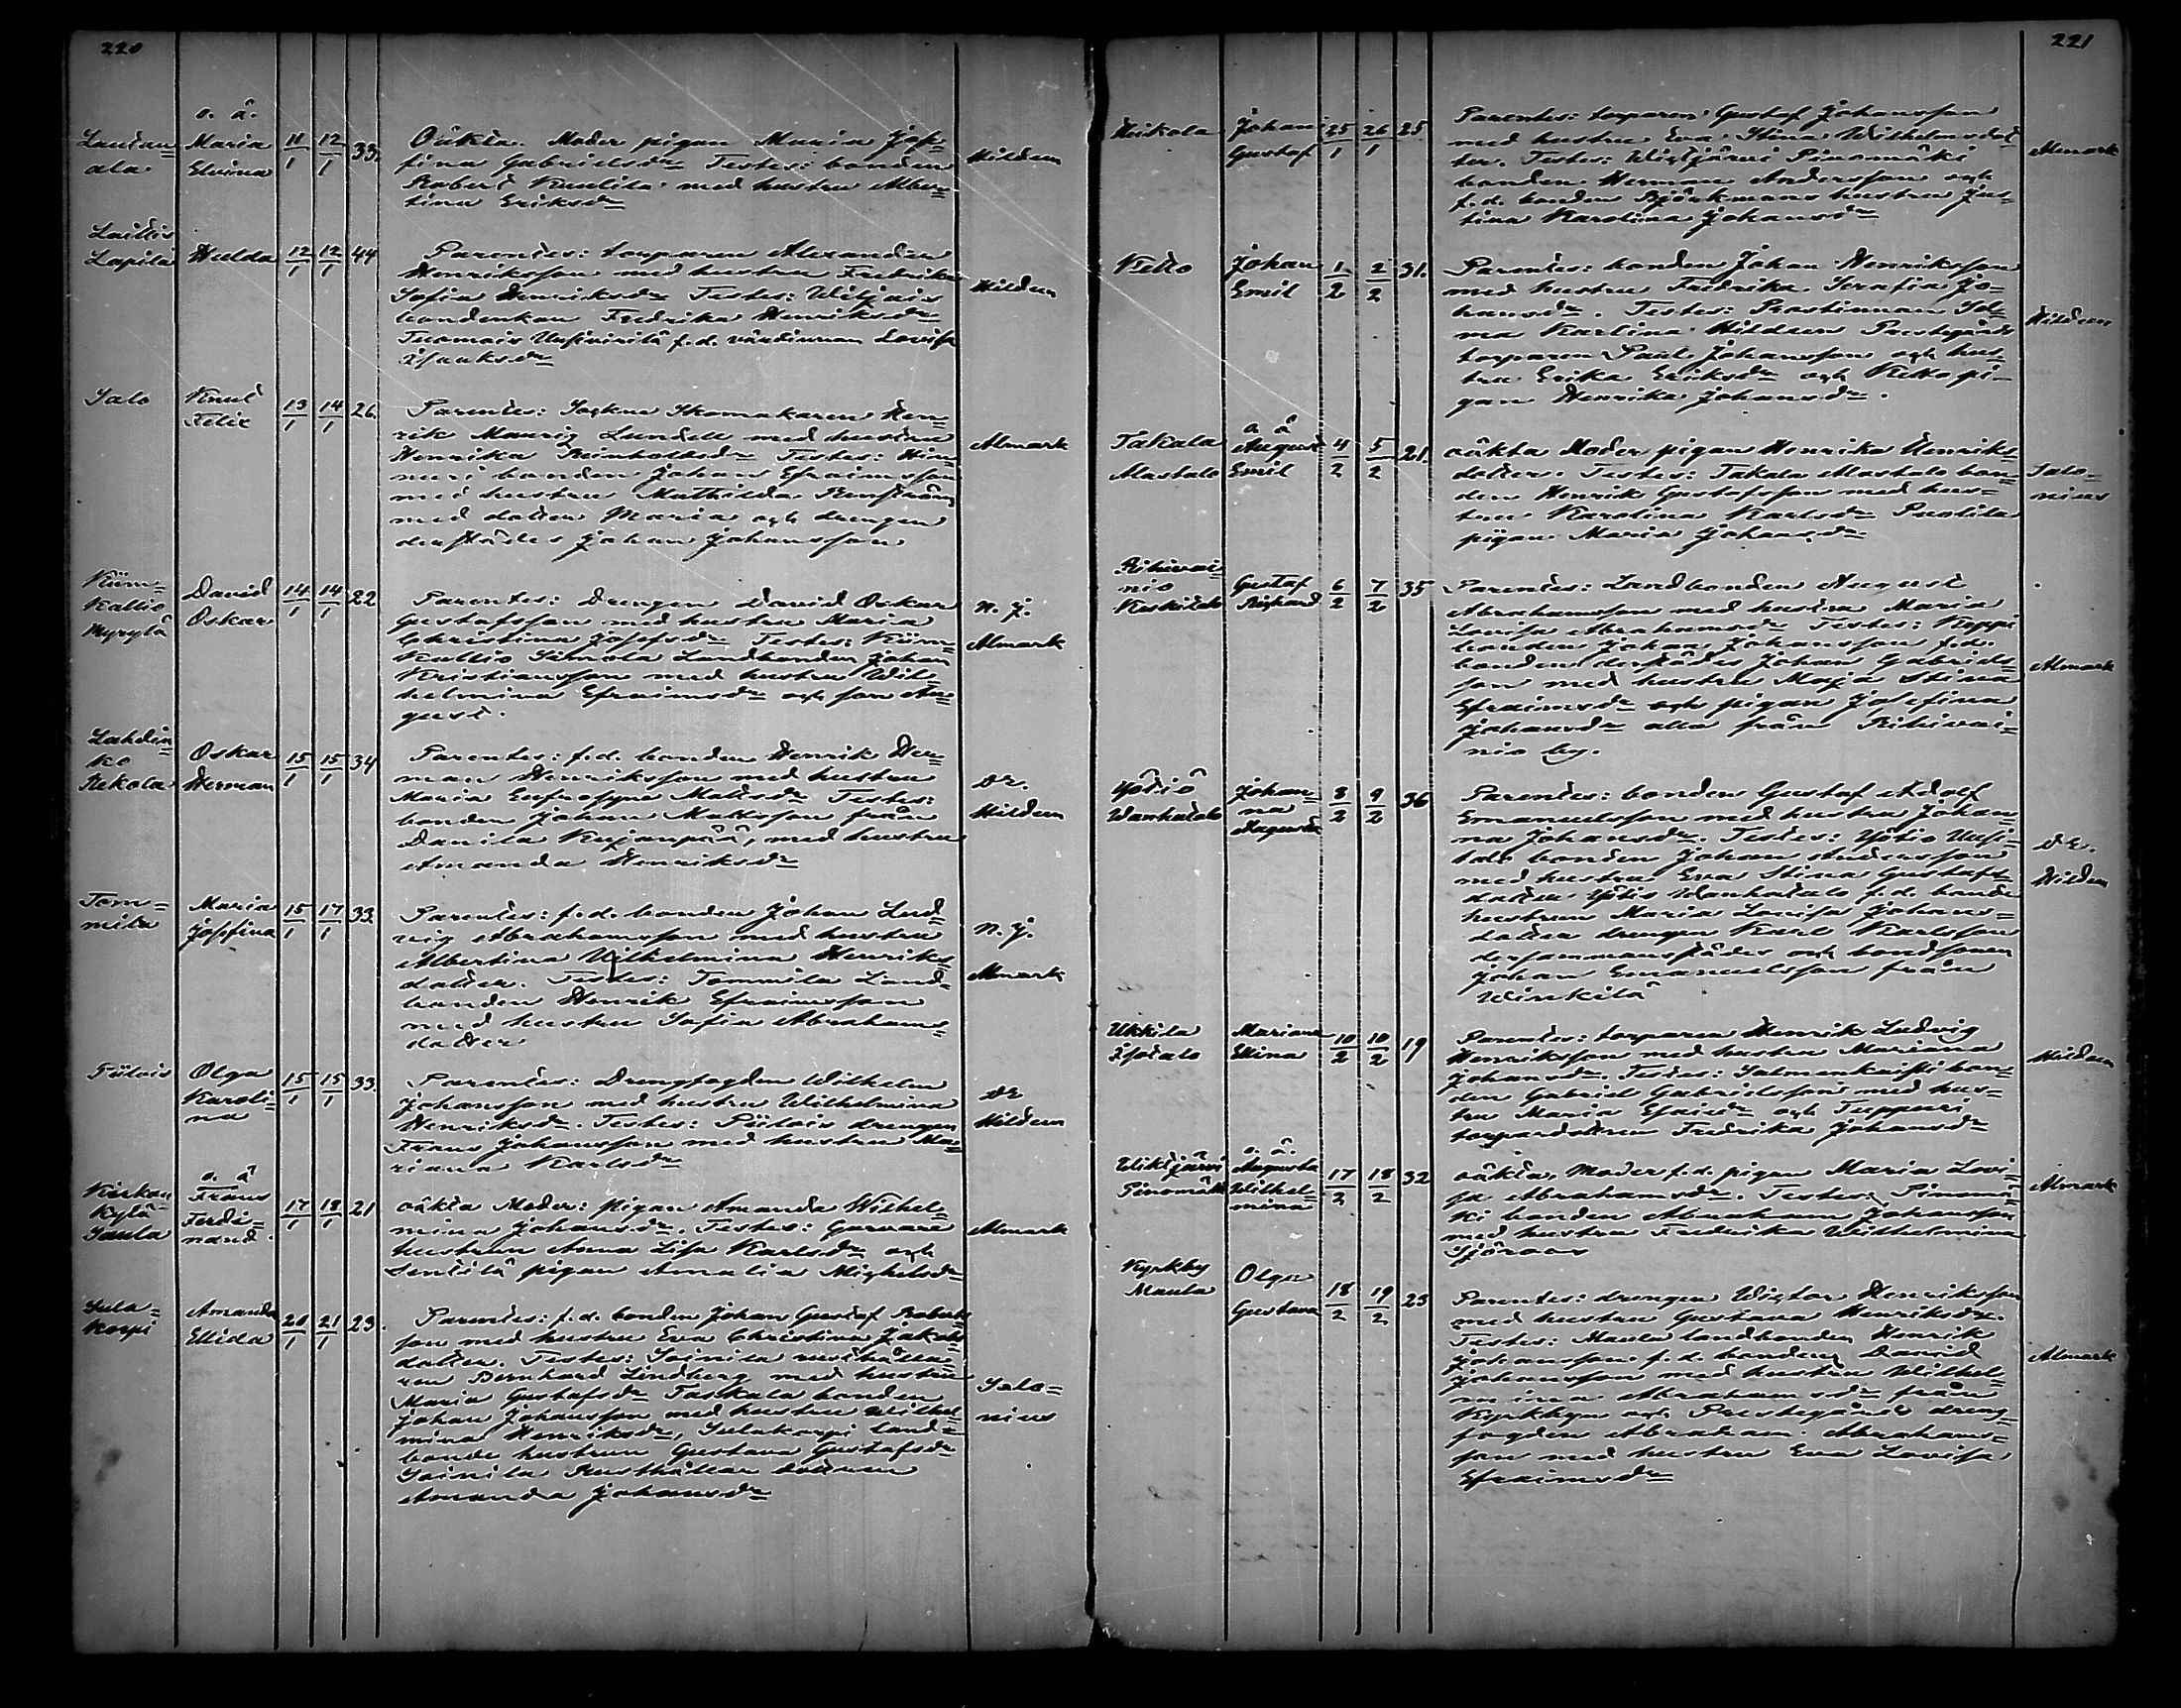 220
o. ä.
Maria
Elvina
11/1
12/1
33.
Oäkta. Moder pigan Maria Jose-
fina Gabrielsdr Testes: bonden
Robert Kaulila med hustru Alber-
tina Eriksdr
Hildeen
Laitis
Lapila
Hulda
12/1
12/1
44
Parentes: torparen Alexander
Henriksson med hustru Fredrika
Sofia Henriksdr Testes: Viljais
bondenkan Fredrika Henriksdr
f.d. värdinnan Lovisa
Isaaksdr
Hildeen
Salo
Knut
Felix
13/1
14/1
26.
Parentes: Sockne Skomakaren Hen-
rik Mauriz Lundell med hustru
Henrika Reinholdsdr Testes: Hin-
neri bonden Johan Efraimsson
med hustru Mathilda
med dotter Maria och drengen
derstädes Johan Johansson
Almark
Kiim-
Kallio
Myrylä
David
Oskar
14/1
14/1
22
Parentes: Drengen David Oskar
Gustafsson med hustru Maria
Christina Josefsdr Testes: Kiim-
Kallio Simola Landbonden Johan
Kristiansson med hustru Wil-
helmina Efraimsdr och son Au-
gust.
n. j.
Almark
Lahdin-
ko
Rekola
Oskar
Herman
15/1
15/1
34
Parentes: f.d. bonden Henrik Her-
man Henriksson med hustru
Maria Eufrosyne Mattsdr Testes:
bonden Johan Mattsson från
Danila Kujanpää, med hustru
Amanda Henriksdr
Dr.
Hildeen
Tom-
mila
Maria
Josefina
15/1
17/1
33.
Parentes: f.d. bonden Johan Lud-
vig Abrahamsson med hustru
Albertina Wilhelmina Henriks-
dotter. Testes: Tommila Land-
bonden Henrik Efraimsson
med hustru Sofia Abrahams-
dotter
n. j.
Almark
Olga
Karoli-
na
15/1
15/1
33.
Parentes: Drengfogden Wilhelm
Johansson med hustru Wilhelmina
Henriksdr. Testes: Piilois drengen
Frans Johansson med hustru Ma-
riana Karlsdr
Dr
Hildeen
Kirkon
Kylä
Saula
o. ä
Frans
Ferdi-
nand.
17/1
18/1
21
oäkta Moder: pigan Amanda Wilhel-
mina Johansdr. Testes: Garvare
hustrun Anna Lisa Karlsdr och
Sentilä pigan Amalia Mickelsdr
Almark
Sula-
korpi
Amanda
Ellida
20/1
21/1
23.
Parentes: f.d. bonden Johan Gustaf Roberts-
son med hustru Eva Christina Jakobs-
dotter. Testes: Soinila rusthålla-
ren Bernhard Lindberg med hustru
Maria Gustafsdr Taskala bonden
Johan Johansson med hustru Wilhel-
mina Henriksdr, Sulakorpi land-
bonde hustrun Gustava Gustafsdr
Soinila Rusthållar dottren
Amanda Johansdr
Salo-
nius
221
Johan
Gustaf
25/1
26/1
25
Parentes: torparen Gustaf Johansson
med hustru Eva Stina Wilhelmsdot-
ter. Testes: Pinomäki
bonden Herman Andersson och
f.d. bonden Björkmans hustru Jus-
tina Karolina Johansdr
Almark
Ketto
Johan
Emil
1/2
2/2
31.
Parentes: bonden Johan Henriksson
med hustru Fredrika Serafia Jo-
hansdr. Testes: Prostinnan Sel-
ma Karlina Hildeen Prestegårds
torparen Paul Johansson och hus-
tru Erika Eriksdr och Ketto pi-
gan Henrika Johansdr.
Hildeen
Takala
Mastalo
o. ä
August
Emil
4/2
5/2
21.
oäkta Moder pigan Henrika Henriks-
dotter. Testes: Takala Mastalo bon-
den Henrik Gustafsson med hus-
tru Karolina Karlsdr Puolila
pigan Maria Johansdr
Salo-
nius
Rihivai-
nio
Keskitalo
Gustaf
Rikhard
6/2
7/2
35
Parentes: Landbonden August
Abrahamsson med hustru Maria
Lovisa Abrahamsdr Testes: Keppi
bonden Johan Johansson f.d.
bonden derstädes Johan Gabriels-
son med hustru Maja Stina
Efraimsdr och pigan Josefina
Johansdr alla från Rihivai-
nio by.
Almark
Yötiö
Wanhatalo
Johan-
na
Augusta
8/2
9/2
36
Parentes: bonden Gustaf Adolf
Emanuelsson med hustru Johan-
na Johansdr. Testes: Yötiö Uusi-
talo bonden Johan Andersson
med hustru Eva Stina Gustafs-
dotter Yötiö Wanhatalo f.d. bonde
hustrun Maria Lovisa Johans-
dotter drengen Karl Karlsson
dersammanstädes och bondsonen
Johan Emanuelsson från
Winkilä
Dr.
Hildeen
Ukkila
Isotalo
Mariana
Elina
10/2
10/2
19
Parentes: torparen Henrik Ludvig
Henriksson med hustru Mariana
Johansdr. Testes: Salmenkaisti bon-
den Gabriel Gabrielsson med hus-
tru Maria Esaiedr och Tuppuri
torpardottren Fredrika Johansdr
Hildeen
Pinomäki
o. ä.
Augusta
Wilhel-
mina
17/2
18/2
32
oäkta, Moder f.d. pigan Maria Lovi-
sa Abrahamsdr. Testes: Pinomä-
ki bonden Abraham Johansson
med hustru Fredrika Wilhelmina
Sjöroos
Almark
Kyrkby
Maula
Olga
Gustava
18/2
19/2
23
Parentes: drengen Victor Henriksson
med hustru Gustava Henriksdr.
Testes: Maula landbonden Henrik
Johansson f.d. bonden David
Johansson med hustru Wilhel-
mina Abrahamsdr från
Kyrkbyn och Prestegårds dreng-
fogden Abraham Abrahams-
son med hustru Eva Lovisa
Efraimsdr
Almark